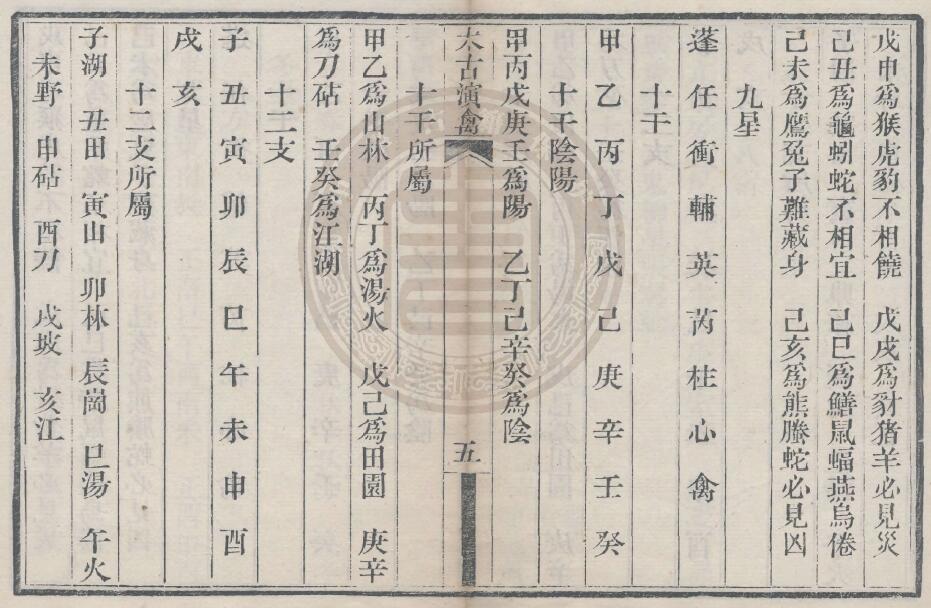 戊申爲猴虎豹不相饒　戊戌爲豺猪羊必見災
己丑爲龜蚓蛇不相宜　己巳爲鱔鼠蝠燕烏倦
己未爲鷹兔子難藏身　己亥爲熊螣蛇必見凶
九星
蓬任衝輔英芮柱心禽
十干
甲乙丙丁戊己庚辛壬癸
十干陰陽
甲丙戊庚壬爲陽　乙丁己辛癸爲陰
太古演禽
五
十干所屬
甲乙爲山林　丙丁爲湯火　戊己爲田園　庚辛
爲刀砧　壬癸爲江湖
十二支
子丑寅卯辰巳午未申酉
戌亥
十二支所屬
子湖　丑田　寅山　卯林　辰崗　巳湯　午火
未野　申砧　酉刀　戌坡　亥江